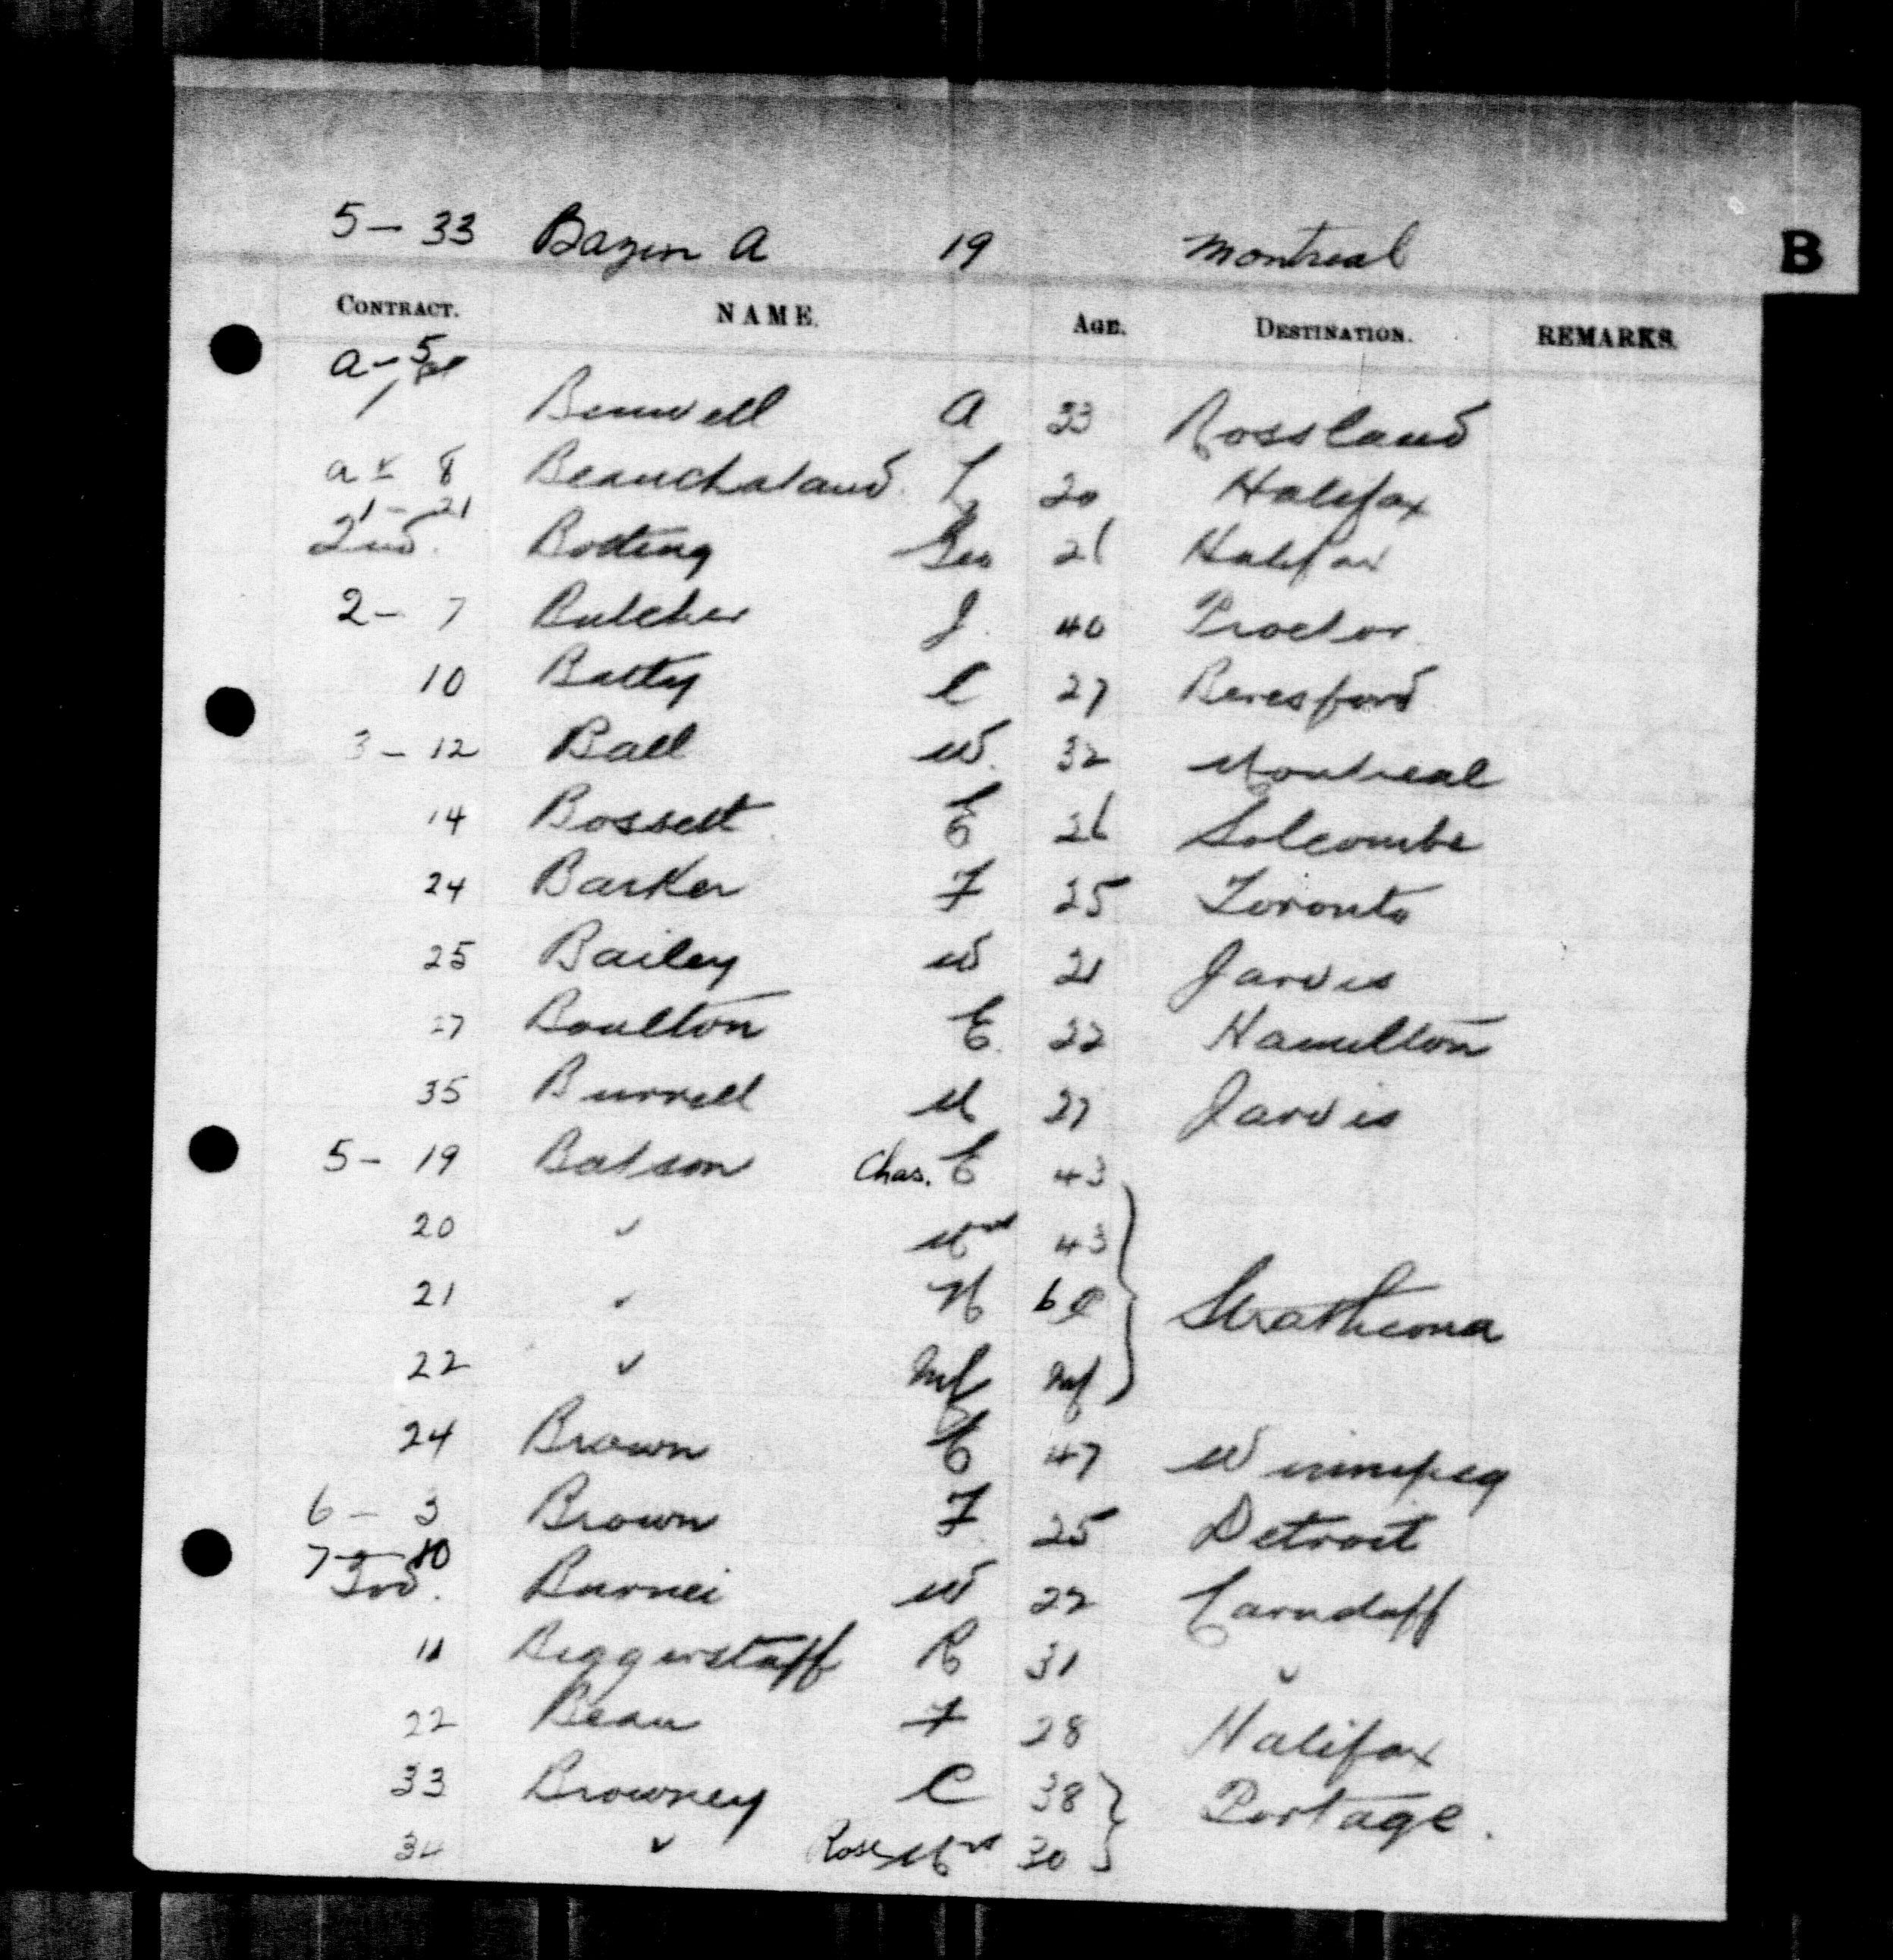 5 - 33 Bazin A 19 Montreal
B
CONTRACT. NAME. AGE. DESTINATION. REMARKS.
A - 5
1 Benwell A 23 Rossland
A 8 L 20 Halifax
1 - 21
2nd. Botting Geo 21 Halifax
2 - 7 Butcher J. 40 Proctor
10 Batty C 27 Beresford
3 - 12 Ball W. 32 Montreal
14 Bossett E 26 Solcombe
24 Barker F 25 Toronto
25 Bailey W 21 Jarvis
27 Boulton E. 22 Hamilton
35 Burrell M 27 Jarvis
5 - 19 Batson Chas. E 43
20 " Mrs 43
21 " H 6 Strathcona
22 " Inf Inf
24 Brown E 47 Winnipeg
6 - 3 Brown F. 25 Detroit
7 - 10
3rd. W 22 Carnduff
11 Biggerstaff R 31 "
22 Bean F 28 Halifax
33 Browney C 38 Portage.
34 " Rose Mrs 30